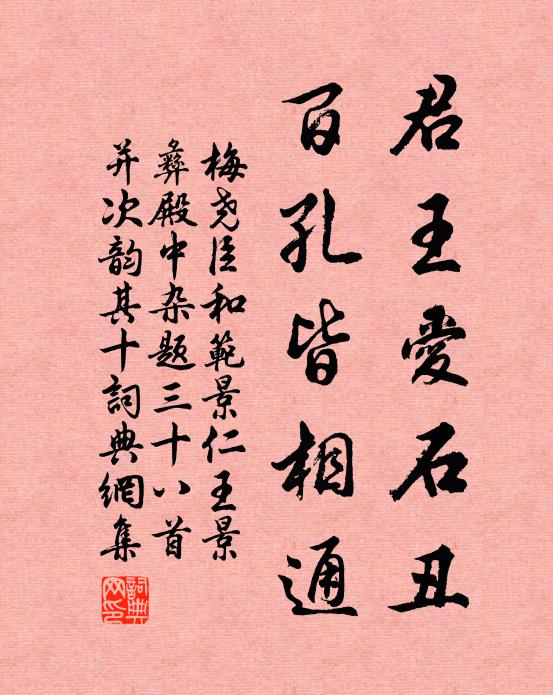 君王愛石丑
百孔皆相通
梅尧臣和範景仁王景
彝殿中杂题三十八首
并次韵其十詞典網集
詞典网印